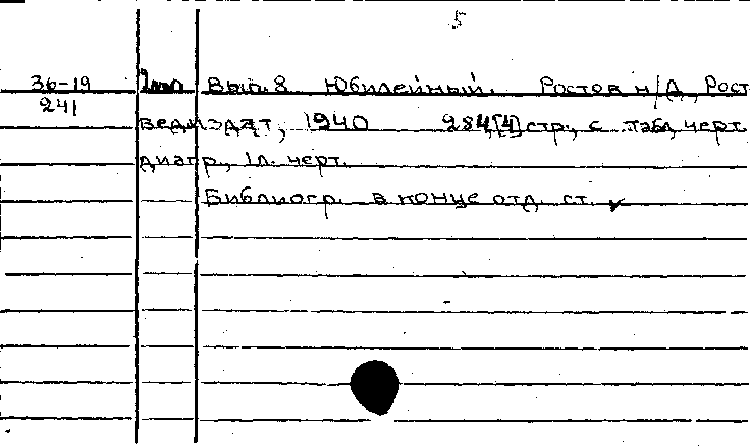 5
36-19 Вып. 8 Юбилейный. Ростов н/Д, Рост
241
ведиздат, 1940 284,[4] стр., с табл. черт.
диагр., 1 л. черт.
Библиогр. в конце отд. ст.